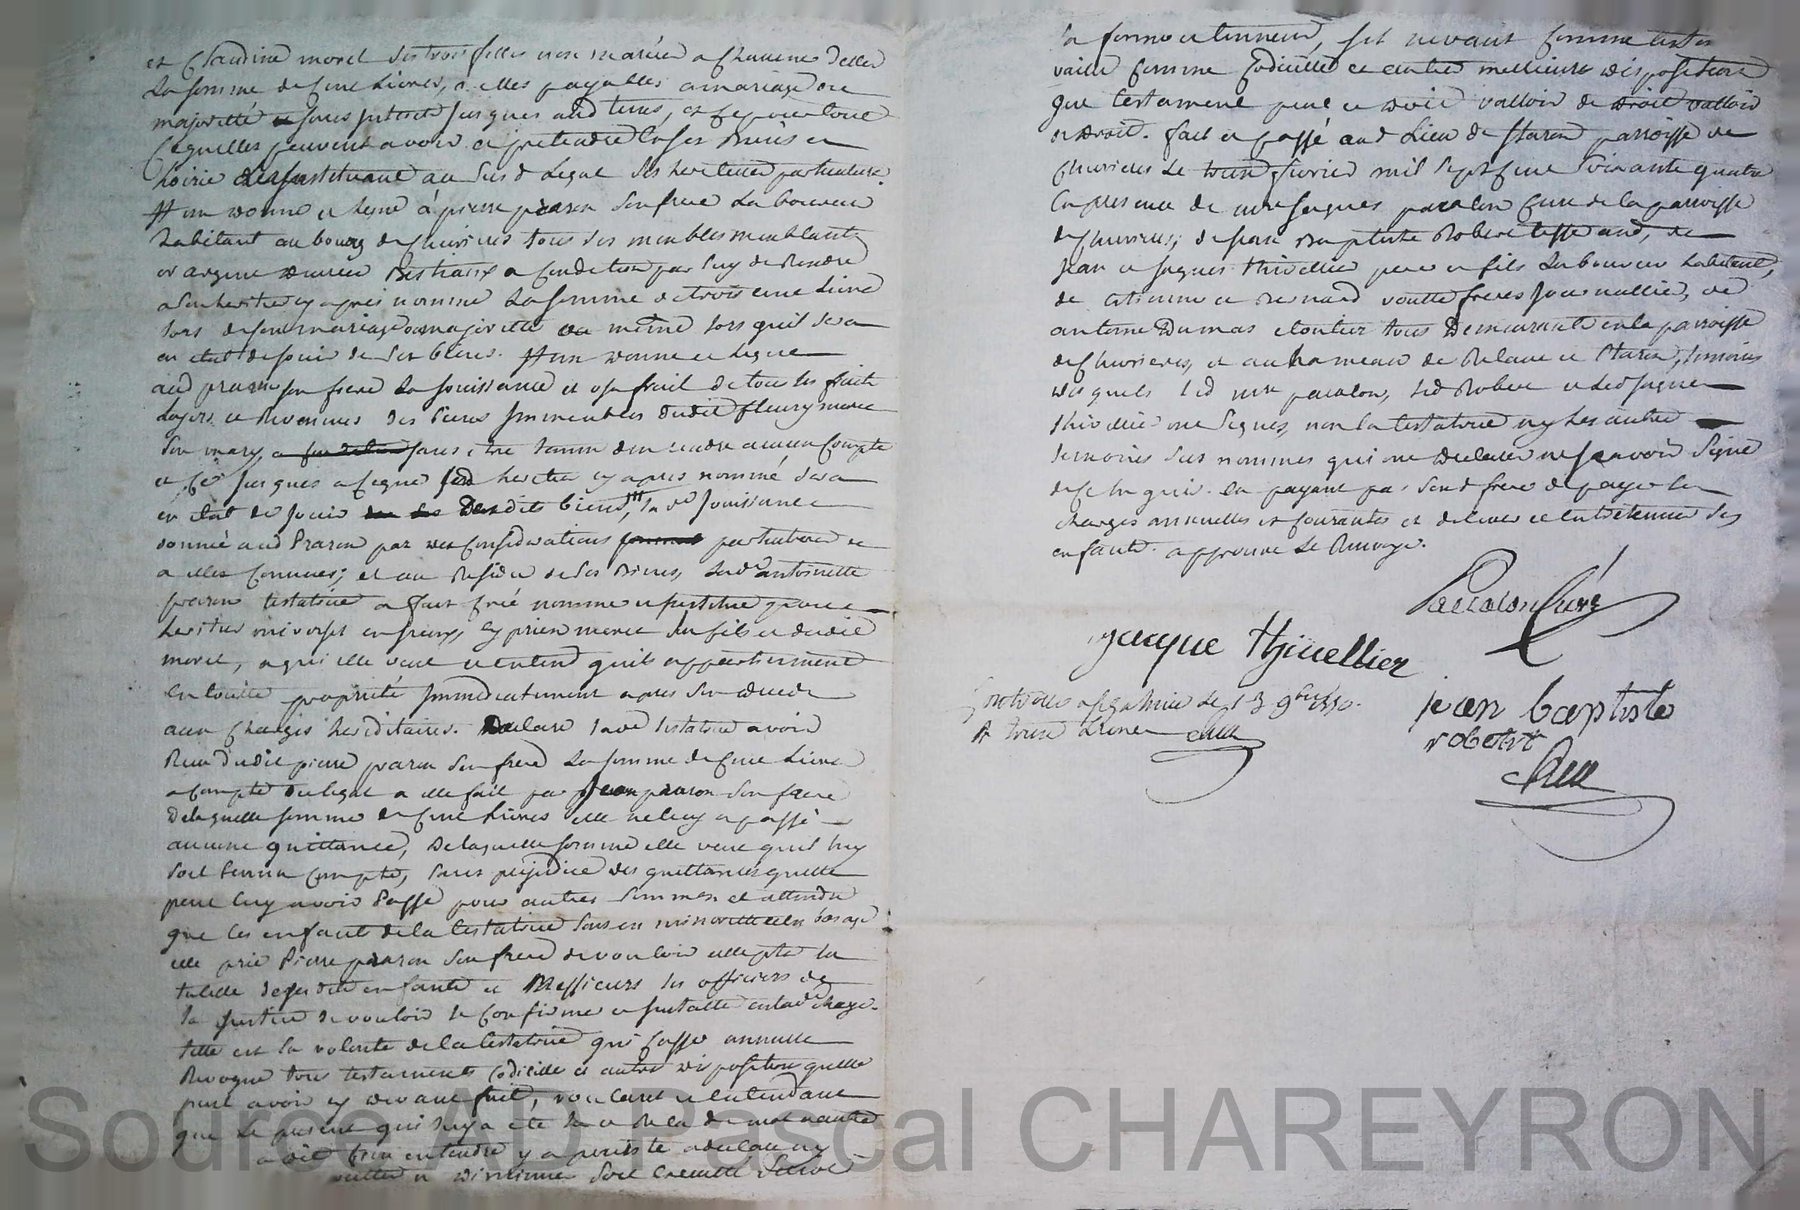 et Claudine morel ses trois filles non mariées a chacune delles
la somme de Cent Livres, a elles payables a mariage ou
majorité sans interets jusques aud temps, et ce pour tout
ce quelles peuvent avoir et pretendre en ses Biens et
hoirie les instituant au sus d legat ses heritieres particulieres.
Item donne et legue à pierre prazon son frere Laboureur
habitant au bourg de chevrieres tous ses meubles meublants
or argent Bestiaux a condition par luy de Rendre
a son heritier cy apres nommé la somme de trois cent Livres
lors de son mariage ou majorité ou même lors quil sera
en etat de jouir de ses biens. Item donne et legue
aud prazon son frere la jouissance et usufruit de tous les fruits
et Revenues des biens Immeubles dudit fleury morel
son mary, sans etre tenu den rendre aucun Compte
et ce jusques a ce que son heritier cy apres nommé sera
en etat de jouir desdits biens, la de jouissance
donnée aud Prazon par des considerations particulieres
a elles Connues; et au Residu de ses Biens, lad. antoinette
prazon testatrice a fait créé nommé et institué pour
heritier universel cyprien morel son fils et dudit
morel, a qui elle veut et entend quils appartiennent
en toute propriété Immediatement apres son deces
aux charges hereditaires. Declare lad testatrice avoir
Reçu dudit pierre prazon son frere la somme de Cent Livres
a compte du legat a elle fait par Jean prazon son frere
de laquelle somme de Cent Livres elle ne luy a passé
aucune quittance, de laquelle somme elle veut quil luy
soit tenu compte, sans prejudice des quittances quelle
peut luy avoir Passé pour autres sommes et attendu
que les enfants de la testatrice sont en minorité et en bas age
elle prie Pierre prazon son frere de vouloir accepter la
tutelle desdits enfants et Messieurs les officiers de
la justice de vouloir le confirmer et installer en lad charge.
telle est la volonté de la testatrice qui casse annulle
Revoque tous testaments codicille et autres disposition quelle
peut avoir cy devant fait, voulant et entendant
que le present qui luy a été lu et Relu de mot a autre
a dit bien entendre y a persisté
soit executé selon
sa forme et teneur, fut nevaut comme testament
vaille comme codicille et autre meilleure disposition
que testament peut et doit valloir de droit valloir
et doit. fait et passé aud Lieu de prazon parroisse de
chevrieres le fevrier mil sept cent soixante quatre
en presence de mre jacques pacalon curé de la parroisse
de chevrieres, de jean Baptiste Robert tisserand, de
Jean et jaques thivellier pere et fils Laboureurs habitant,
de et Benard voutte freres journalliers, de
antoine Dumas cloutier tous Demeurants en la parroisse
de chevrieres, et au hameau de et Prazon, temoins
desquels led mre pacalon, led Robert et led jaques
thivellier ont signés, non la testatrice ny les autres
temoins sus nommés qui ont declaré ne scavoir signer
de ce en payant par sond frere de payer les
charges annuelles et courantes et delever et entretenir ses
enfants. approuvé le Renvoye.
Pacalon Curé
jacque thiuellier
jean baptiste
robert
le 13 9bre 1770.
R treize Livres
Source AD Pascal CHAREYRON